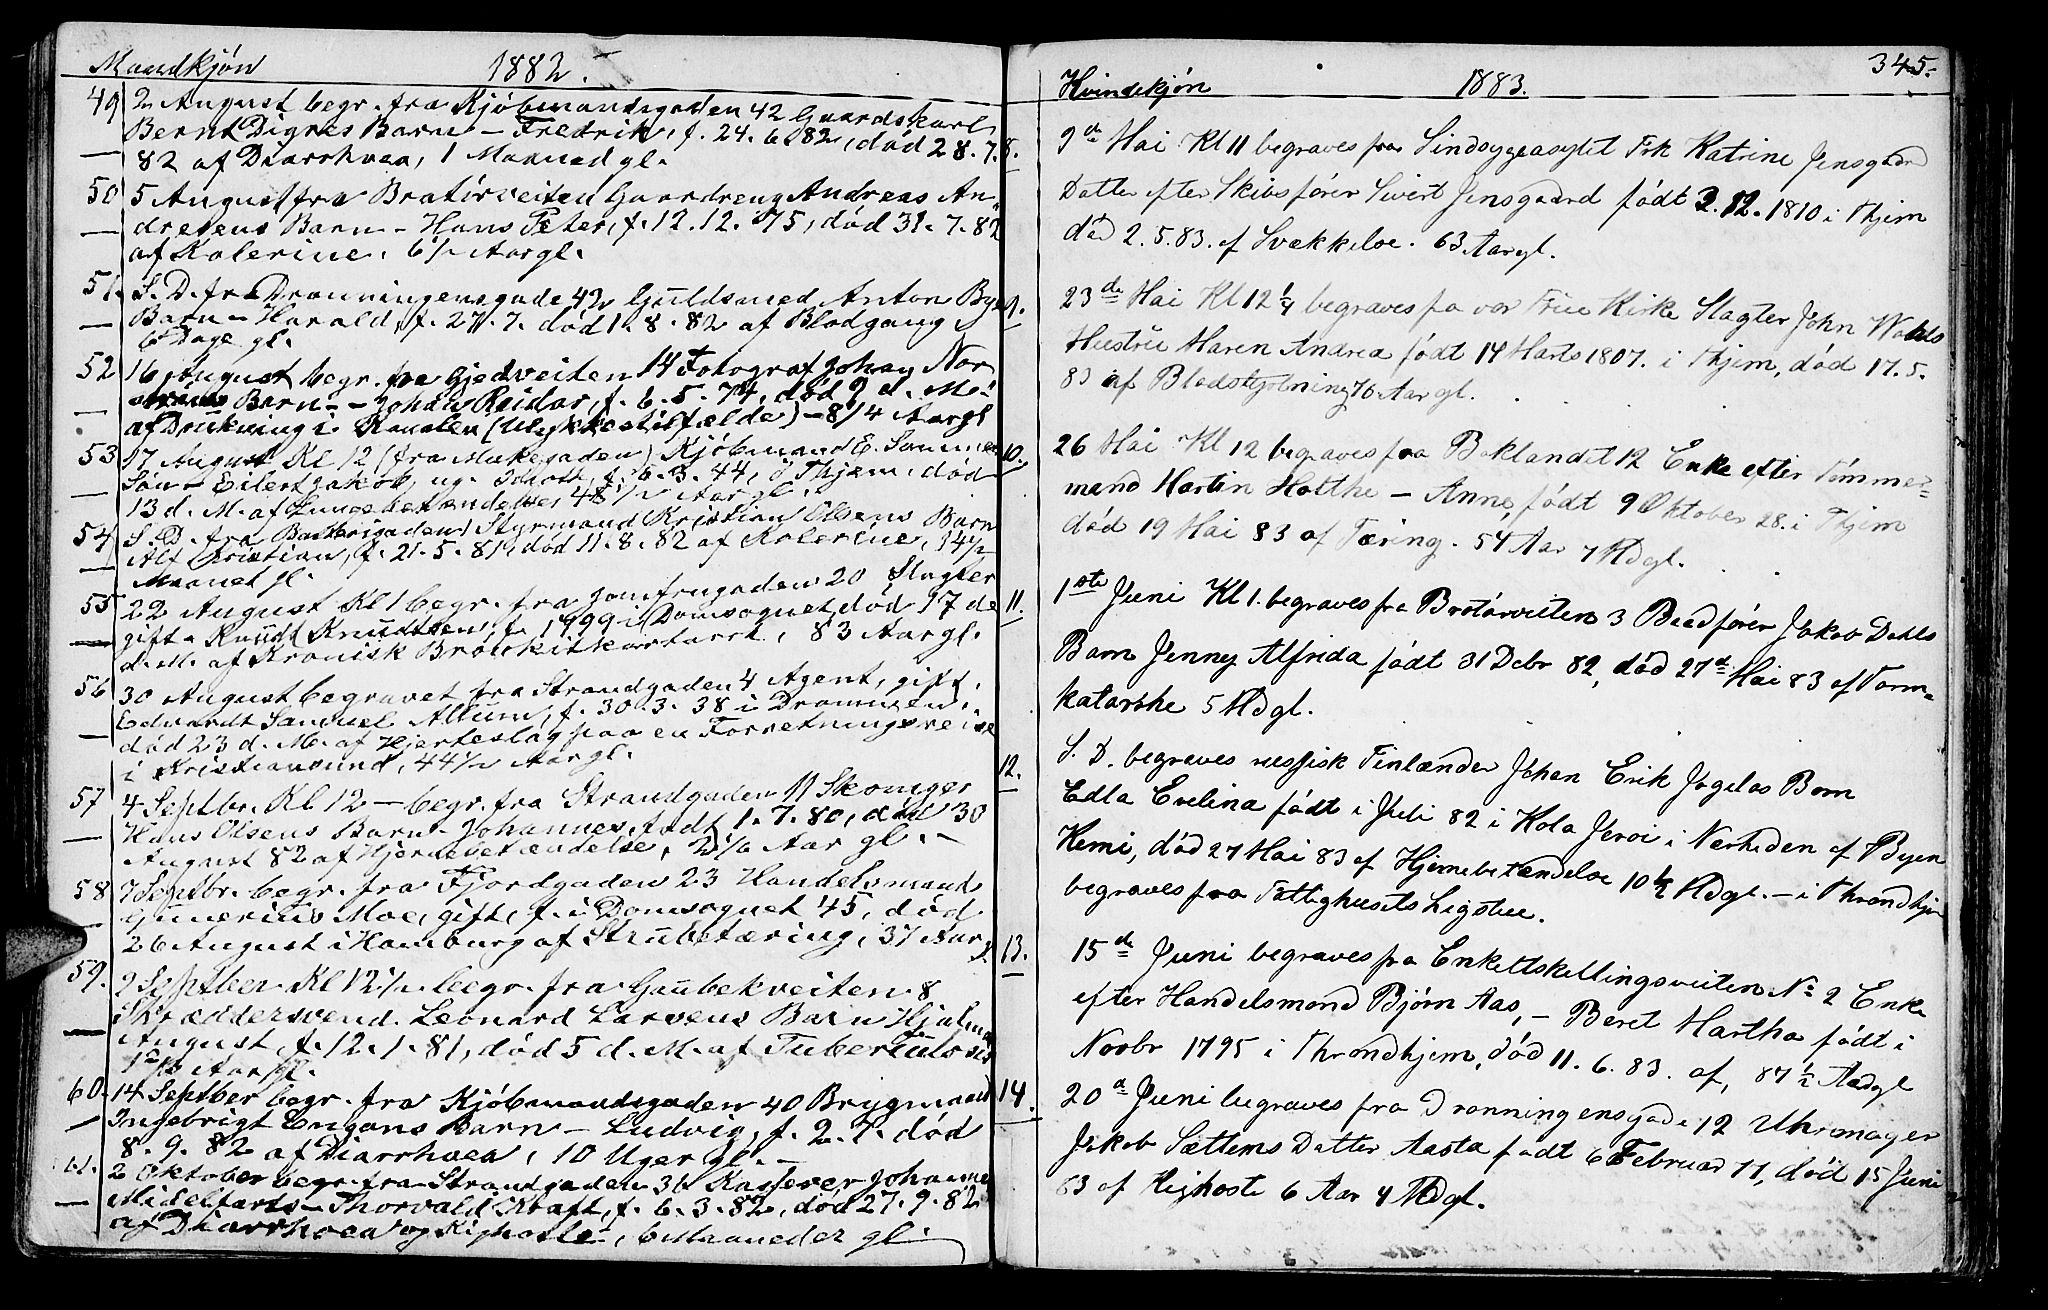 Mandkjön 1882.
49 2 August begr. fra Kjöbmandsgaden 42 Gaardskarl
Bernt Dignes Barn – Fredrik, f. 24. 6. 82, död 28. 7.
82 af Diarrhoea, 1 Maaned gl.
50 5 August fra Bratörveiten Gaardreng Andreas An-
dresens Barn – Hans Peter, f. 12. 12. 75, död 31. 7. 82
af Kolerine. 6½ Aar gl.
51. S. D. fra Dronningensgade 42 Guldsmed Anton Byes
Barn – Harald, f. 27. 7. död 1. 8. 82 af Blodgang
6 Dage gl.
52 16 August begr. fra Gjedveiten 14 Fotograf Johan Nor-
Barn – Johan Reidar, f. 6. 5. 74, död 9 d. M.
af Drukning i Kanalen (Ulykkestilfælde) – 8¼ Aar gl
53 17 August Kl 12 (fra Munkegaden) Kjöbmand E. Sommer
Sön – Eilert Jakob, ug. Idiott, f. 6. 3. 44, i Thjem, död
13 d. M. af Lungebetændelse, 48½ Aar gl.
54 S. D. fra Bakkegaden Styrmand Kristian Olsens Barn
Alf Kristian, f. 21. 5. 81, död 11. 8. 82 af Kolerine, 14½
Maanet gl.
55 22 August Kl 1 begr. fra Jomfrugaden 20 Slagter
gift. Knudt Knudtsen, f. 1799 i Domsognet, död 17 de
d. M. af Kronisk Bronkitkatarrh, 83 Aar gl.
56 30 August begravet fra Strandgaden 4 Agent, gift,
Edvardt Samuel Allum, f. 30. 3. 38 i Drammen,
död 23 d. M. af Hjerteslag paa en Forretningsreise
i Kristiansund, 44½ Aar gl.
57 4 Septbr. Kl 12 – begr. fra Strandgaden 11 Skomger
Hans Olsens Barn – Johannes, födt 1. 7. 80, död 30
August 82 af Hjernebetændelse, 2 1/6 Aar gl. –
58 7 Septbr. begr. fra Fjordgaden 23 Handelsmand
Gunerius Moe, gift, f. i Domsognet 45, död
26 August i Hamburg af Strubetæring, 37 Aar gl
59. 9 Septber Kl 12½ begr. fra Gaubekveiten 8
Skræddersvend Leonard Larsens Barn Hjalmar
August, f. 12. 1. 81, död 5 d. M. af Tuberkulosis
Aar gl.
60. 14 Septber begr. fra Kjöbmandsgaden 40 Brygmand
Ingebrigt Engans Barn – Ludvig, f. 2. 7. död
8. 9. 82 af Diarrhoea, 10 Uger gl. –
61. 2 Oktober begr. fra Strandgaden 36 Kasserer Johannes
Midelfarts – Thorvald Kraft, f. 6. 3. 82, död 27. 9. 82
af Diarrhoea og Kighoste, 6 Maaneder gl.
345.
Kvindekjön 1883.
8. 9de Mai Kl 11 begraves fra Sindsygeasylet Frk Katrine Jensgaard
Datter efter Skibsförer Sivert Jensgaard födt 2. 12. 1810 i Thjem
död 2. 5. 83. af Svækkelse. 63 Aar gl.
9. 23de Mai Kl 12¼ begraves fra vor Frue Kirke Slagter John Wolds
Hustru Maren Andrea födt 14 Marts 1807. i Thjem, död 17. 5.
83 af Blodstyrtning 76 Aar gl.
10. 26 Mai Kl 12 begraves fra Baklandet 12 Enke efter Tömmer-
mand Martin Holthe – Anne, födt 9 Oktober 28. i Thjem
död 19 Mai 83 af Tæring. 54 Aar 7 Mdgl.
11. 1ste Juni Kl 1. begraves fra Bratörveiten 3 Baadförer Jakob Dahls
Barn Jenny Alfrida födt 31 Debr 82, död 27de Mai 83 af Tarm-
katarrhe 5 Mdgl.
12. S. D. begraves russisk Finlænder Johan Erik Jogelas Barn
Edla Evelina födt i Juli 82 i Kola Jervi i Nærheden af Byen
Kemi, död 27 Mai 83 af Hjernebetændelse 10½ Mdgl. – i Throndhjem
begraves fra Fattighusets Ligstue.
13. 15de Juni begraves fra Enkeltskillingsveiten No 2 Enke
efter Handelsmand Björn Aas, – Beret Martha födt i
Novbr 1795 i Throndhjem, död 11. 6. 83. af, 87½ Aar gl
14. 20d Juni begraves fra Dronningensgade 12 Uhrmager
Jakob Sættems Datter Aasta födt 6 Februar 77, död 15 Juni
83 af Kighoste 6 Aar 4 Mdgl.